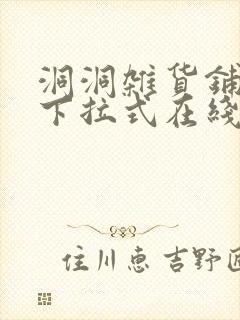 洞洞雜貨鋪
下拉式在綫
住川惠 吉野匠